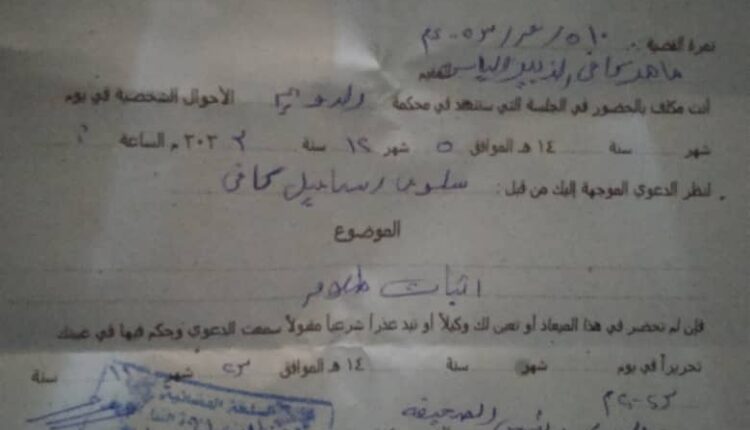 نمرة القضية : ٥١٠ / ش / ٢٠٢٣م
ماهر كافي الزبير الياس المقيم
أنت مكلف بالحضور في الجلسة التي ستنعقد في محكمة الأحوال الشخصية في يوم
شهر سنة ١٤ هـ الموافق ٥ شهر ١٢ سنة ٢٠٢٣ م الساعة
لنظر الدعوي الموجهة إليك من قبل: سلوى إسماعيل كافي
الموضوع
اثبات طلاق
فإن لم تحضر في هذا الميعاد أو تعين لك وكيلاً أو تبد عذراً شرعياً مقبولاً سمعت الدعوي وحكم فيها في غيبتك
تحريراً في يوم شهر سنة ١٤ هـ الموافق ٢٣ شهر سنة
٢٠٢٣م
السلطة القضائية